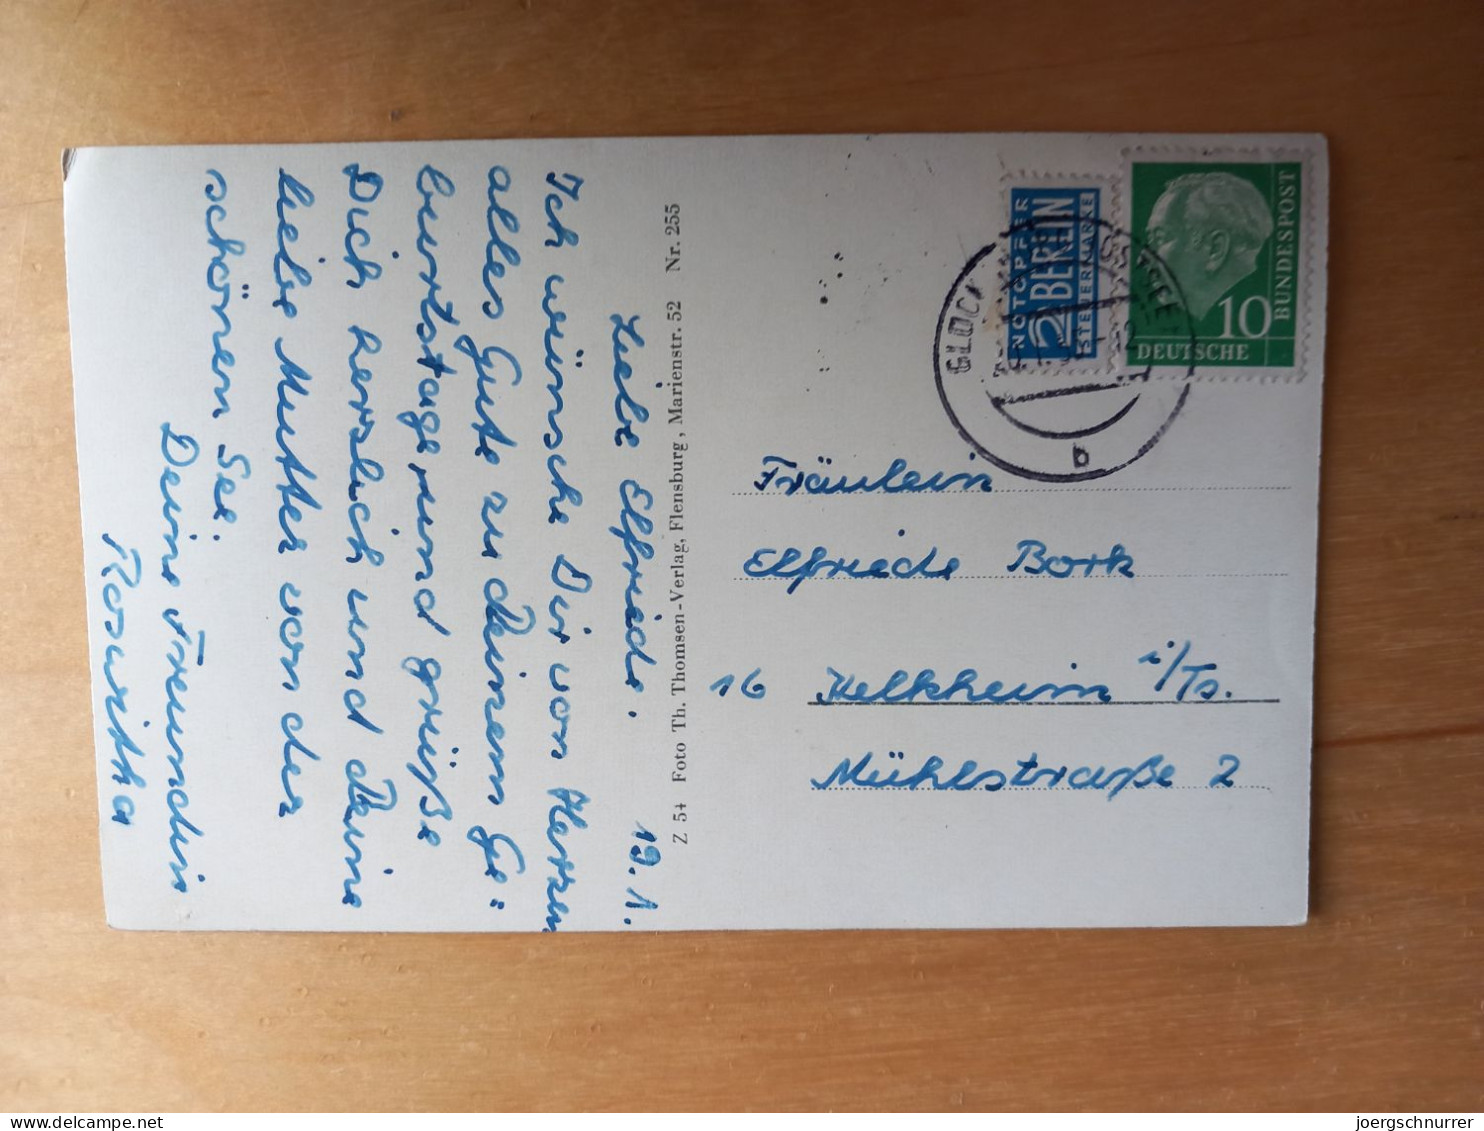 19. 1.
Liebe Elfriede.
Ich wünsche Dir von Herzen
alles Gute zu Deinem Ge=
burtstage und grüße
Dich herzlich und Deine
liebe Mutter von der
schönen See.
Deine Freundin
Roswitha
Z 54 Foto Th. Thomsen-Verlag, Flensburg, Marienstr. 52 Nr. 255
NOTOPFER
2 BERLIN
STEUERMARKE
10
DEUTSCHE
BUNDESPOST
Fräulein
Elfriede Bork
16 Kelkheim i/Ts.
Mühlstraße 2
joergschnurrer